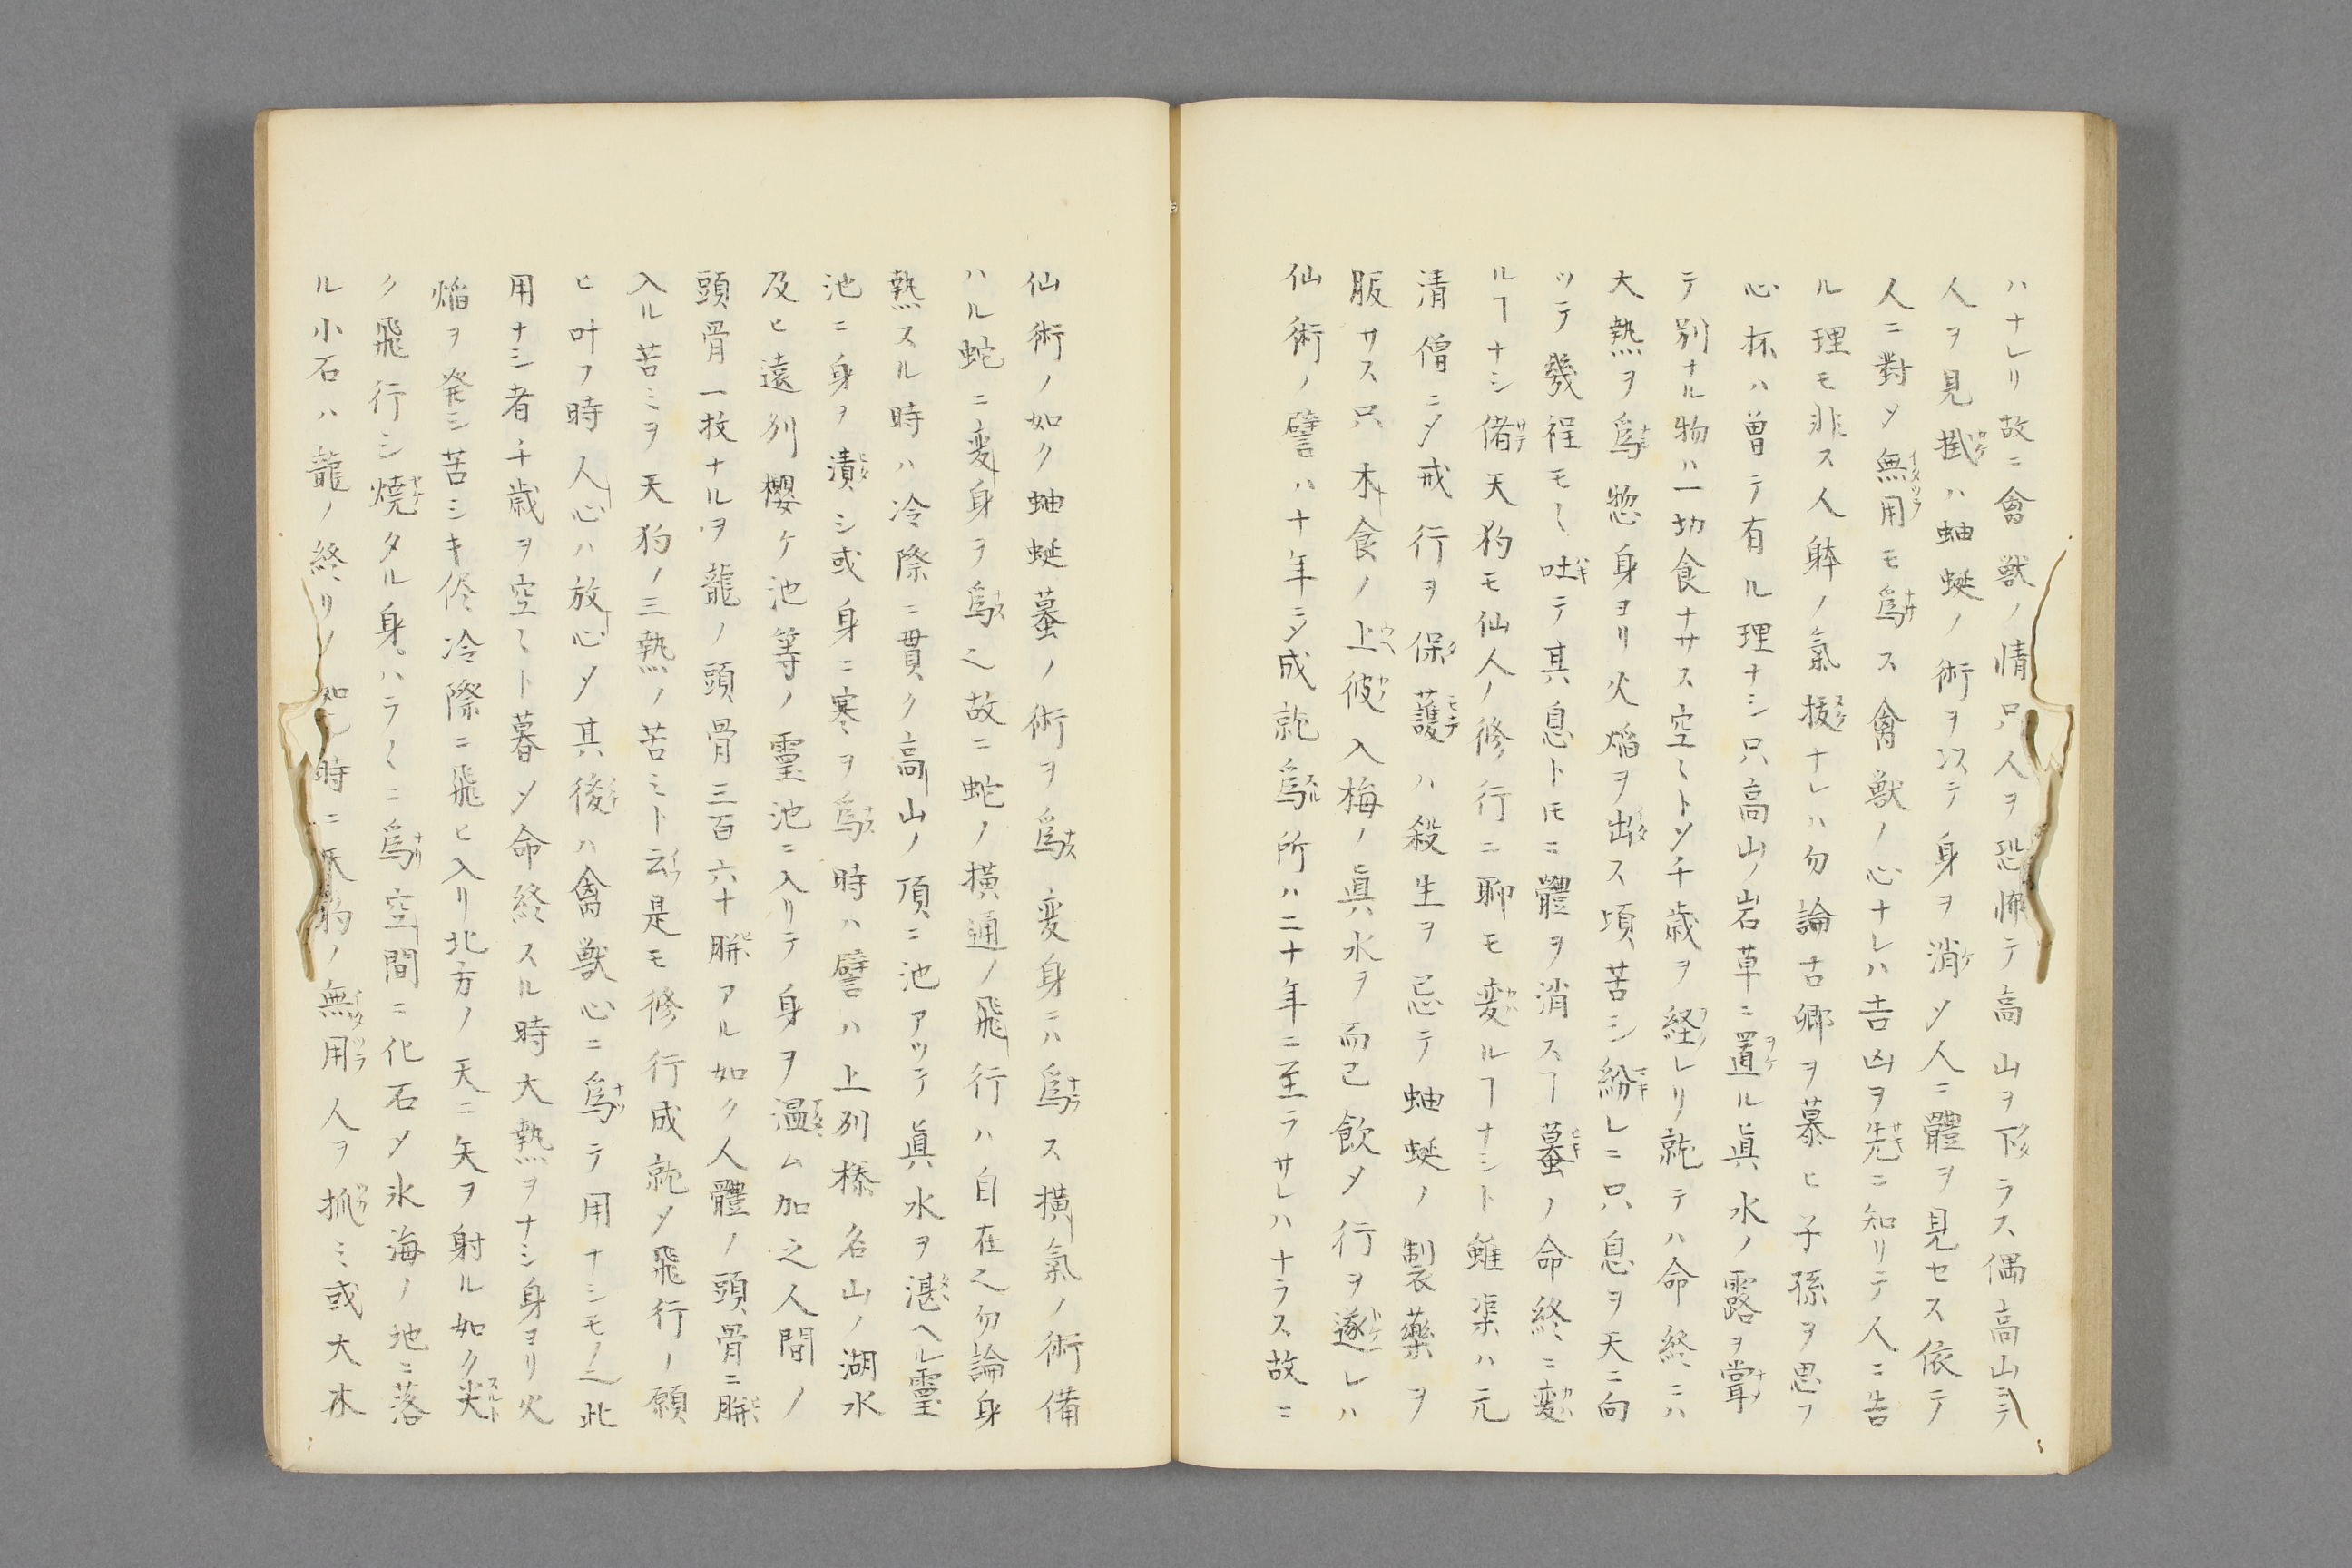 ハナレリ故ニ禽獣ノ情只人ヲ恐怖テ高山ヲ下ラス偶高山ニテ
人ヲ見掛ハ蚰蜒ノ術ヲ以テ身ヲ消〆人ニ體ヲ見セス依テ
人ニ對〆無用モ爲ス禽獣ノ心ナレハ吉凶ヲ先ニ知リテ人ニ告
ル理モ非ス人躰ノ氣拔ナレハ勿論古郷ヲ慕ヒ子孫ヲ思フ
心抔ハ曽テ有ル理ナシ只高山ノ岩草ニ置ル眞水ノ露ヲ甞
テ別ナル物ハ一切食ナサス空〻ト〆千歳ヲ経レリ就テハ命終ニハ
大熱ヲ爲惣身ヨリ火焔ヲ出ス頃苦シ紛レニ只息ヲ天ニ向
ッテ幾程モ〻吐テ其息トモニ體ヲ消スヿ蟇ノ命終ニ変
ルヿナシ偖天狗モ仙人ノ修行ニ聊モ変ルヿナシト雖渠ハ元
清僧ニ〆戒行ヲ保護ハ殺生ヲ忌テ蚰蜒ノ製藥ヲ
服サス只木食ノ上彼入梅ノ眞水ヲ而已飲〆行ヲ遂レハ
仙術ノ譬ハ十年ニ〆成就爲所ハ二十年ニ至ラサレハナラス故ニ
仙術ノ如ク蚰蜒蟇ノ術ヲ爲変身ニハ爲ス横氣ノ術備
ハル蛇ニ変身ヲ爲之故ニ蛇ノ横通ノ飛行ハ自在之勿論身
熱スル時ハ冷際ニ貫ク高山ノ頂ニ池アッテ眞水ヲ湛ヘル靈
池ニ身ヲ漬シ或身ニ寒ヲ爲時ハ譬ハ上列榛名山ノ湖水
及ヒ遠列櫻ケ池等ノ靈池ニ入リテ身ヲ温ム加之人間ノ
頭骨一枚ナルヲ龍ノ頭骨三百六十腁アル如ク人體ノ頭骨ニ腁
入ル苦ミヲ天狗ノ三熱ノ苦ミト云是モ修行成就〆飛行ノ願
ヒ叶フ時人心ハ放心〆其後ハ禽獣心ニ爲テ用ナシモノ之此
用ナシ者千歳ヲ空〻ト暮〆命終スル時大熱ヲナシ身ヨリ火
焔ヲ発シ苦シキ侭冷際ニ飛ヒ入リ北方ノ天ニ矢ヲ射ル如ク尖
ク飛行シ燒タル身ハラ〻ニ爲空間ニ化石〆氷海ノ地ニ落
ル小石ハ龍ノ終リノ如シ時ニ天狗ノ無用人ヲ抓ミ或大木